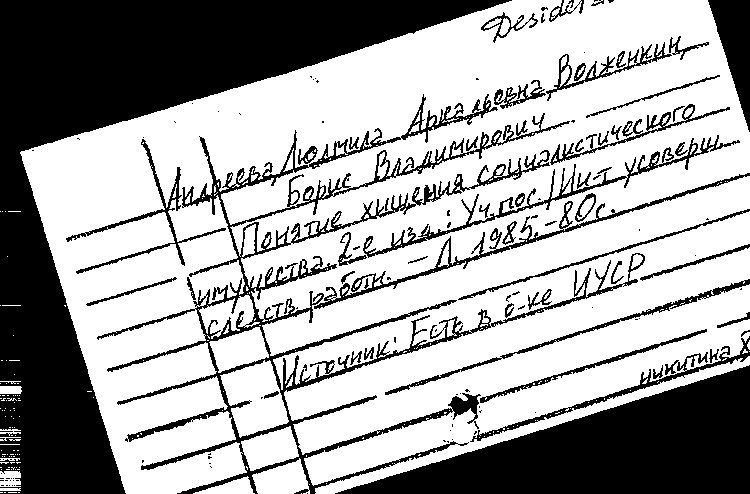 Андреева, Людмила Аркадьевна, Волженкин,
Борис Владимирович
Понятие хищения социалистического
имущества. 2-е изд.: Уч. пос. / Ин-т усоверш.
следств. работн. – Л., 1985. – 80с.
Источник: Есть в б-ке ИУСР
никитина 8